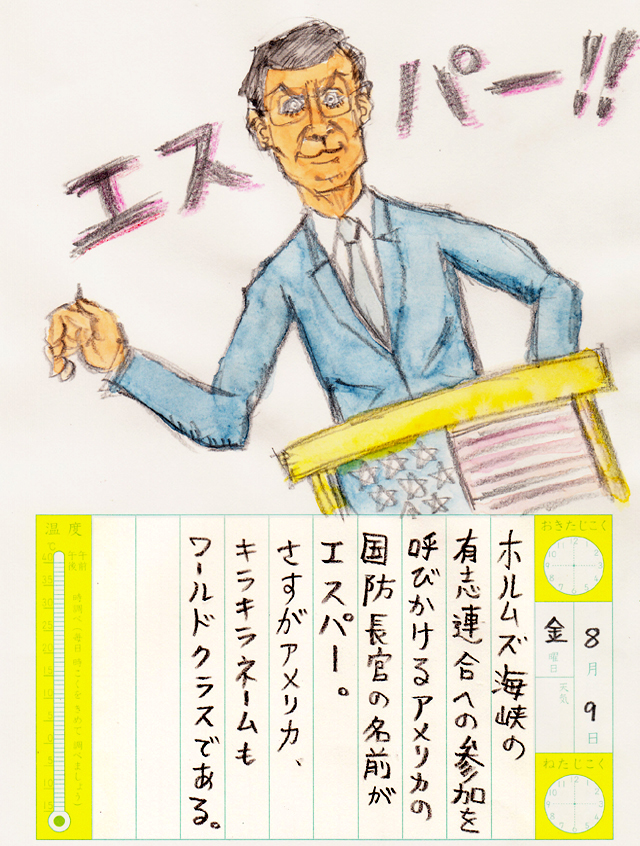 エスパー!!
おきたじこく
8月
9日
金曜日
天気
ねたじこく
ホルムズ海峡の
有志連合への参加を
呼びかけるアメリカの
国防長官の名前が
エスパー。
さすがアメリカ、
キラキラネームも
ワールドクラスである。
温度
℃
午前
午後
時調べ(毎日時こくをきめて調べましょう)